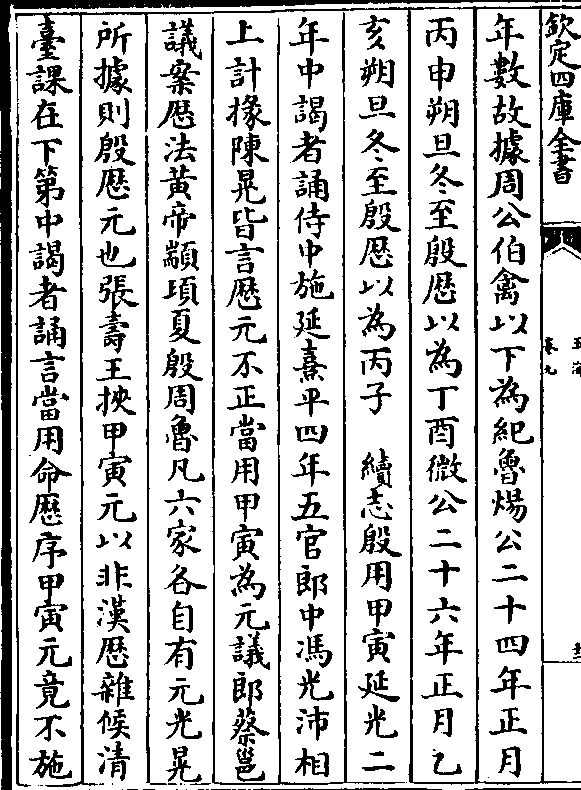 欽定四庫全書
玉海
卷九
年數故據周公伯禽以下為紀魯煬公二十四年正月
丙申朔旦冬至殷厯以為丁酉微公二十六年正月乙
亥朔旦冬至殷厯以為丙子　續志殷用甲寅延光二
年中謁者誦侍中施延熹平四年五官郎中馮光沛相
上計掾陳晃皆言厯元不正當用甲寅為元議郎蔡邕
議案厯法黄帝顓頊夏殷周魯凡六家各自有元光晃
所據則殷厯元也張壽王挾甲寅元以非漢厯雜候清
臺課在下第中謁者誦言當用命厯序甲寅元竟不施